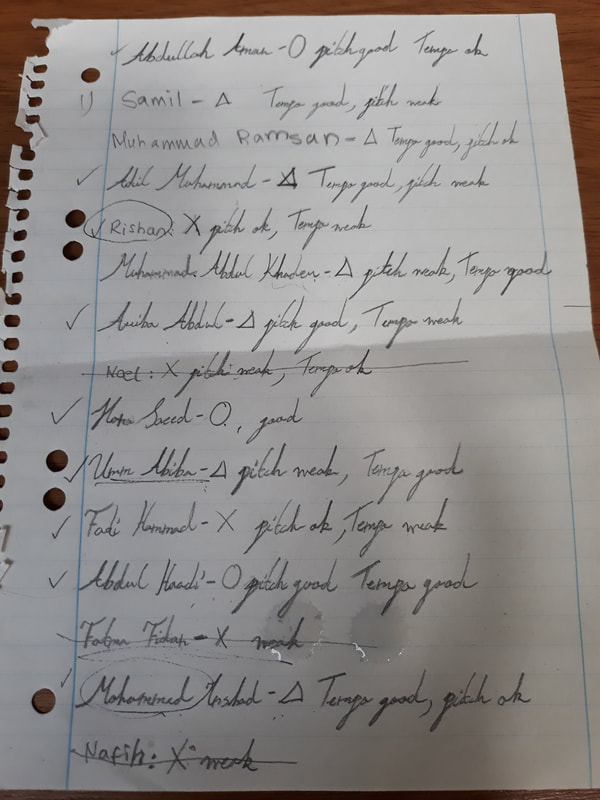 ✓ Abdullah Aman - O pitch good Tempo ok
1) Samil - Δ Tempo good, pitch weak
Muhammad Ramsan - Δ Tempo good, pitch ok
✓ Adil Muhammad - Δ Tempo good, pitch weak
✓ Rishan: X pitch ok, Tempo weak
Muhammad Abdul Khader - Δ pitch weak, Tempo good
✓ Abdul - Δ pitch good, Tempo weak
Noel: X pitch weak, Tempo ok
✓ Saeed - O, good
✓ Umm Abiba - Δ pitch weak, Tempo good
✓ Fadi Hammad - X pitch ok, Tempo weak
✓ Abdul Haadi - O pitch good Tempo good
Fatma Fidan - X weak
✓ Mohammed Inshad - Δ Tempo good, pitch ok
Nafih: X weak